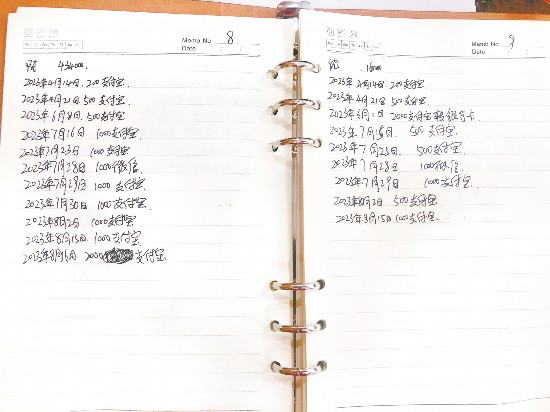 Memo No. 8
Date
2023年4月14日. 200支付宝.
2023年4月21日 500支付宝.
2023年6月8日. 500支付宝.
2023年7月16日 1000支付宝.
2023年7月23日 1000支付宝.
2023年7月28日 1000微信.
2023年7月29日 1000支付宝.
2023年7月30日 1000支付宝.
2023年8月2日 1000支付宝.
2023年8月15日 1000支付宝.
2023年8月16日 2000 支付宝.
Memo No. 9
Date
2023年4月14日. 200支付宝.
2023年4月21日 500支付宝.
2023年6月 日 2000支付宝 卡.
2023年7月16日 500支付宝.
2023年7月23日 500支付宝.
2023年7月28日 1000微信.
2023年7月29日 1000支付宝.
2023年8月2日 500支付宝
2023年8月15日 100支付宝.